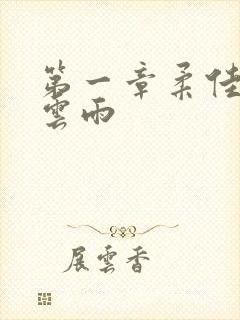 第一章柔佳
雲雨
展雲香